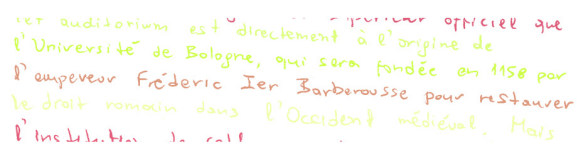 officiel que
cet auditorium est directement à l'origine de
l'Université de Bologne, qui sera fondée en 1158 par
l'empereur Fréderic Ier Barberousse pour restaurer
le droit romain dans l'Occident médiéval. Mais
l'institution de